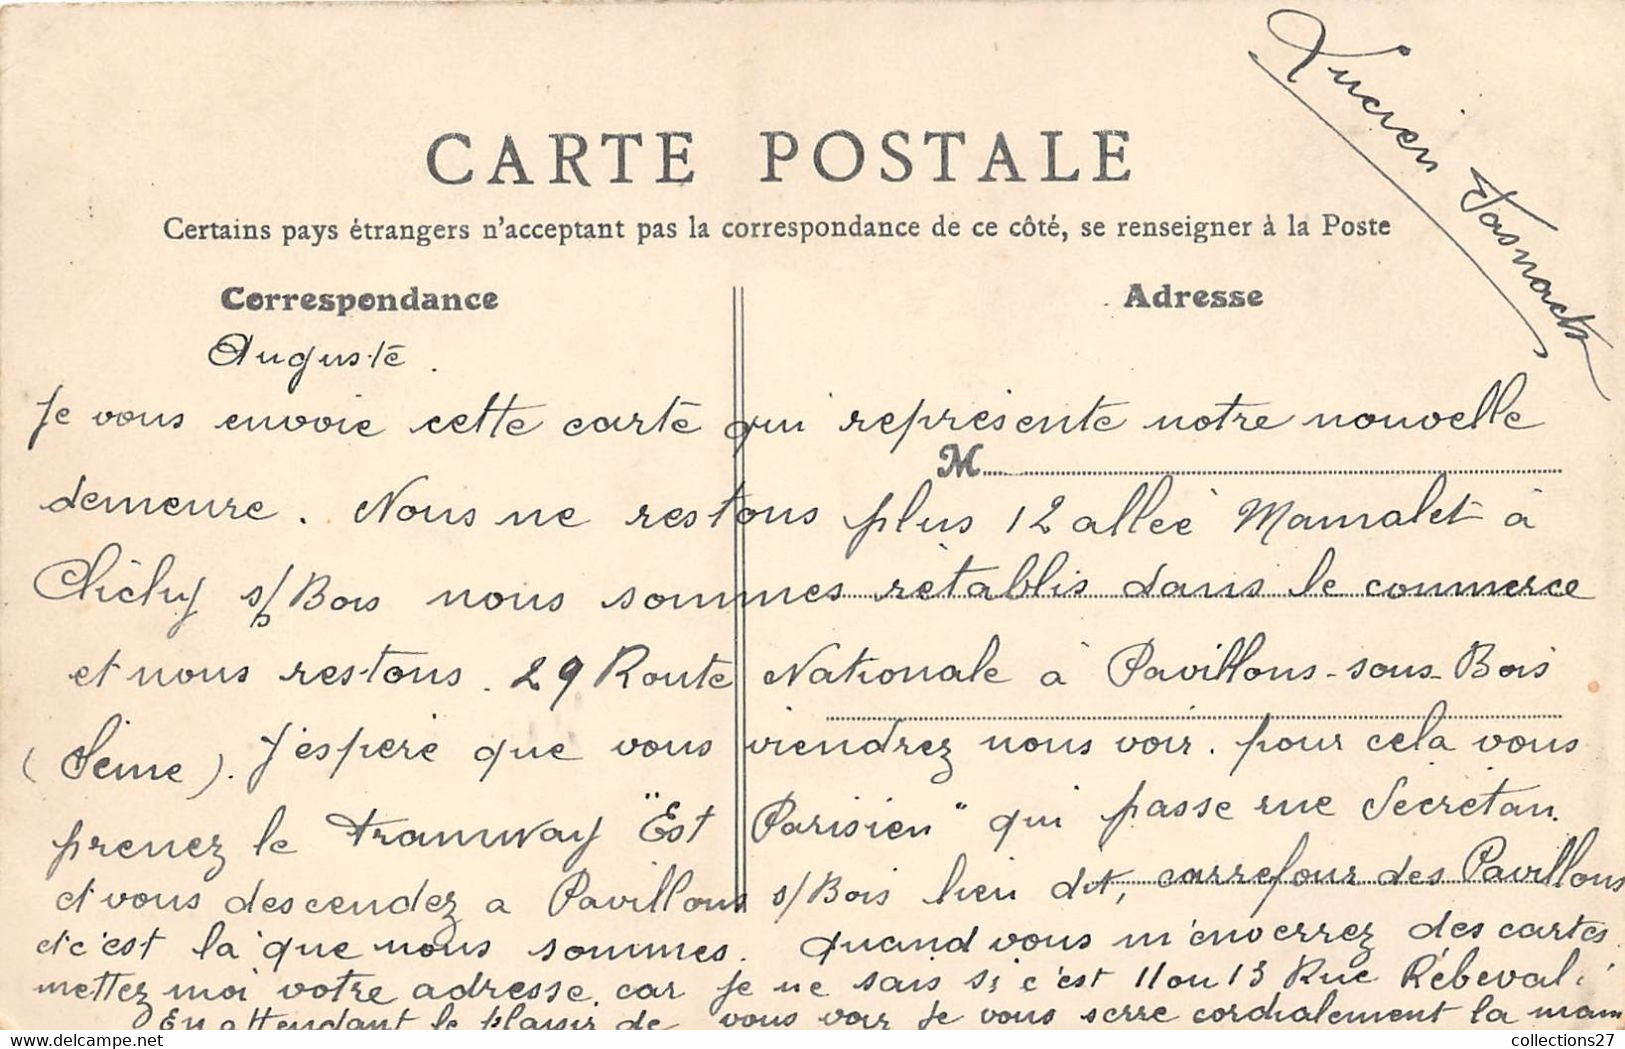 Lucien Tasnock
CARTE POSTALE
Certains pays étrangers n'acceptant pas la correspondance de ce côté, se renseigner à la Poste
Correspondance
Adresse
Auguste.
Je vous envoie cette carte qui représente notre nouvelle
M
demeure. Nous ne restons plus 12 allée Mamalet à
Clichy s/Bois nous sommes rétablis dans le commerce
et nous restons. 29 Route Nationale à Pavillons-sous-Bois
(Seine). J'espère que vous viendrez nous voir. pour cela vous
prenez le tramway "Est Parisien" qui passe rue Secrétan.
et vous descendez a Pavillons s/Bois lieu dit, carrefour des Pavillons
et c'est là que nous sommes. Quand vous m'enverrez des cartes
mettez moi votre adresse. car je ne sais si c'est 11 ou 13 Rue Rébeval.
En attendant le plaisir de vous voir je vous serre cordialement la main
collections27